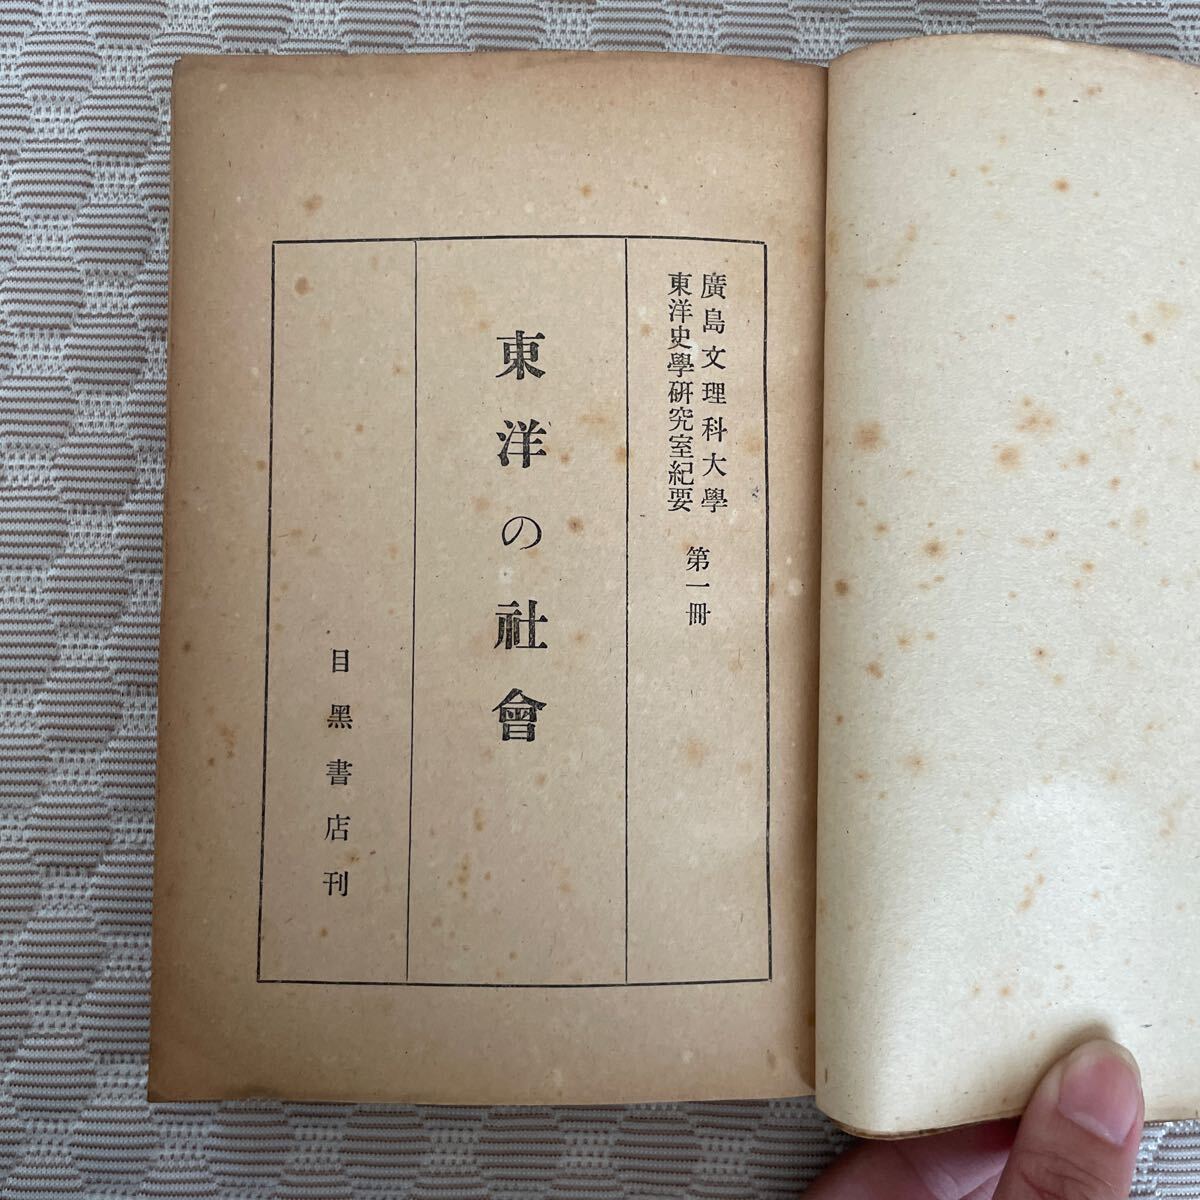 廣島文理科大學
東洋史學硏究室紀要
第一冊
東洋の社會
目黑書店刊